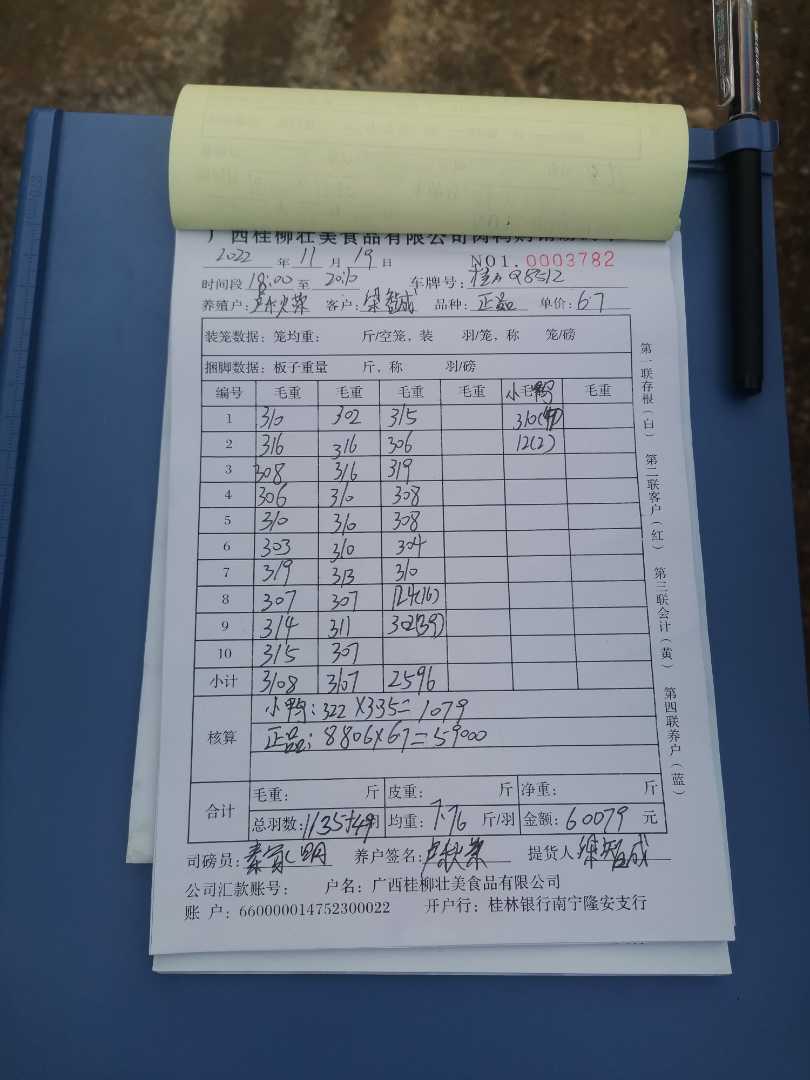 广西桂柳壮美食品有限公司肉鸭购销
2022 年 11 月 19 日 NO1.0003782
时间段 18:00 至 20:10 车牌号: Q8512
养殖户: 卢秋荣 客户: 梁智成 品种: 正品 单价: 6.7
装笼数据: 笼均重: 斤/空笼, 装 羽/笼, 称 笼/磅
捆脚数据: 板子重量 斤, 称 羽/磅
编号 毛重 毛重 毛重 毛重 小鸭 毛重
1 310 302 315 310
2 316 316 306 12(2)
3 308 316 319
4 306 310 308
5 310 310 308
6 303 310 304
7 319 313 310
8 307 307 124(16)
9 314 311 302(39)
10 315 307
小计 3108 3107 2596
核算 小鸭: 322×335=1079
正品: 8806×67=59000
合计 毛重: 斤 皮重: 斤 净重: 斤
总羽数: 1135+49羽 均重: 7.76 斤/羽 金额: 60079 元
司磅员: 养户签名: 卢秋荣 提货人: 梁智成
公司汇款账号: 户名: 广西桂柳壮美食品有限公司
账 户: 660000014752300022 开户行: 桂林银行南宁隆安支行
第一联存根(白) 第二联客户(红) 第三联会计(黄) 第四联养户(蓝)